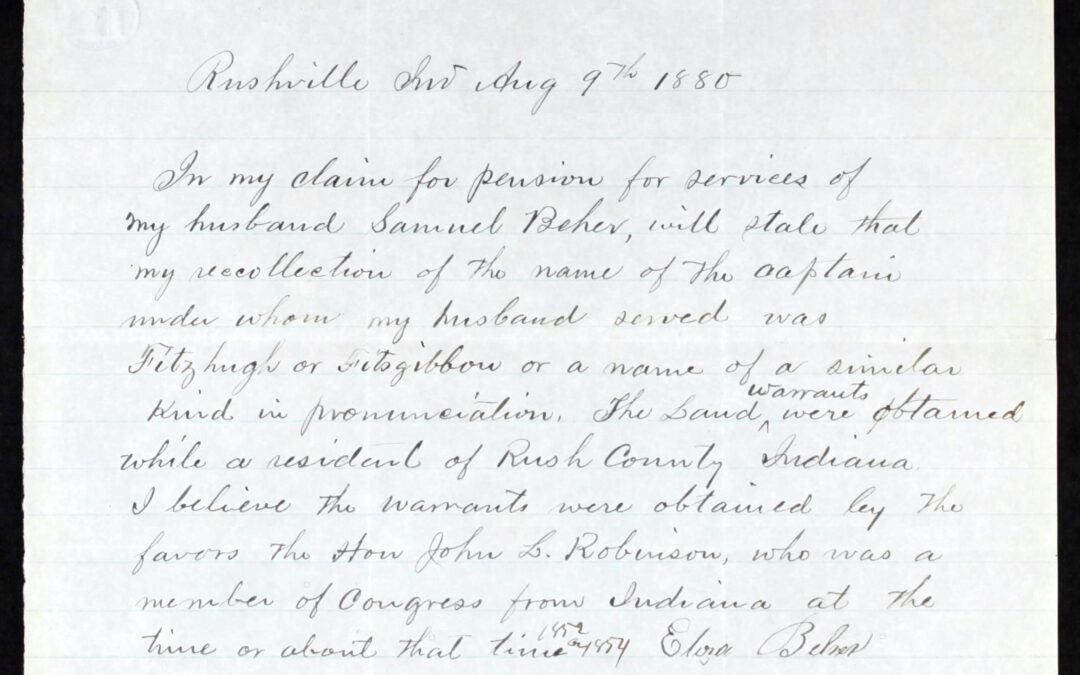 Rushville Ind Aug 9th 1880
In my claim for pension for services of
my husband Samuel Beher, will state that
my reccollection of the name of the captain
under whom my husband served was
Fitzhugh or Fitsgibbon or a name of a similar
Kind in pronunciation. The Land warrants were obtained
while a resident of Rush County Indiana.
I believe the warrants were obtained by the
favors the Hon John L. Robinson, who was a
member of Congress from Indiana at the
time or about that time 1852 or 1854 Eliza Beher